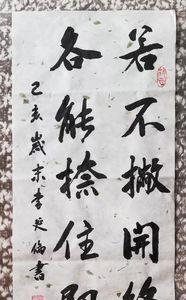 若不撇開終
各能捺住即
己亥歲末李延倫書